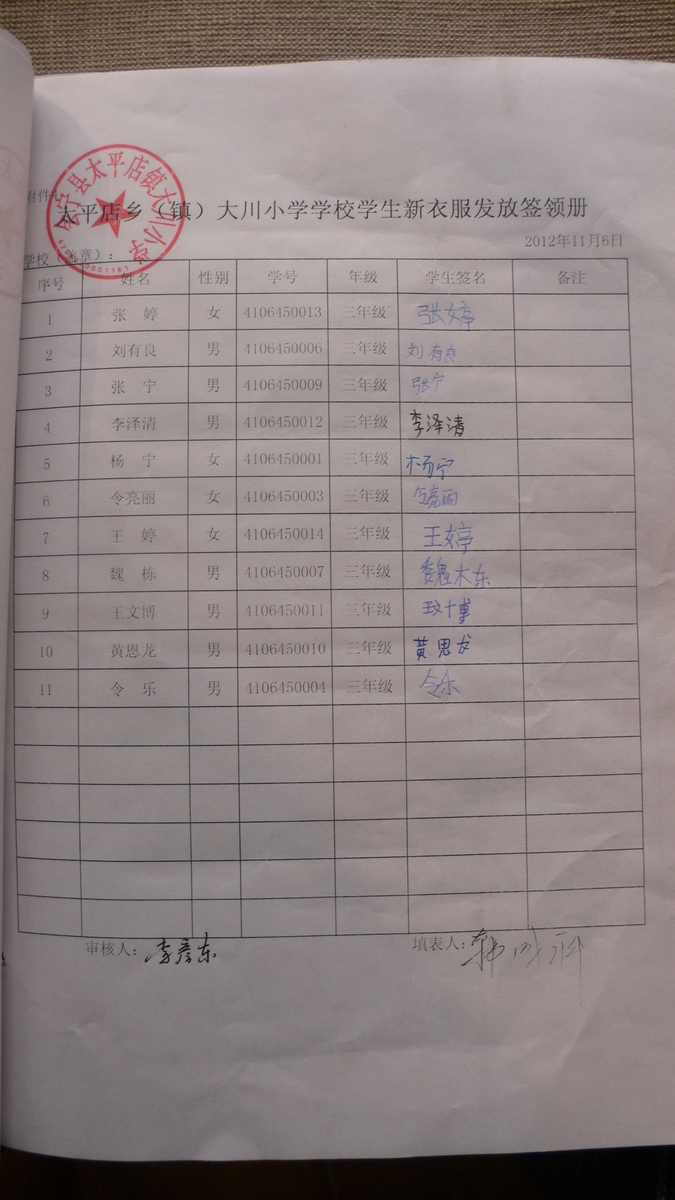 附件1
太平店乡（镇）大川小学学校学生新衣服发放签领册
2012年11月6日
学校（盖章）：
宁县太平店镇大川小学
序号 姓名 性别 学号 年级 学生签名 备注
1 张 婷 女 4106450013 三年级 张婷
2 刘有良 男 4106450006 三年级 刘有良
3 张 宁 男 4106450009 三年级 张宁
4 李泽清 男 4106450012 三年级 李泽清
5 杨 宁 女 4106450001 三年级 杨宁
6 令亮丽 女 4106450003 三年级 令亮丽
7 王 婷 女 4106450014 三年级 王婷
8 魏 栋 男 4106450007 三年级 魏栋
9 王文博 男 4106450011 三年级 王文博
10 黄恩龙 男 4106450010 三年级 黄思龙
11 令 乐 男 4106450004 三年级 令乐
审核人：李彦东 填表人：